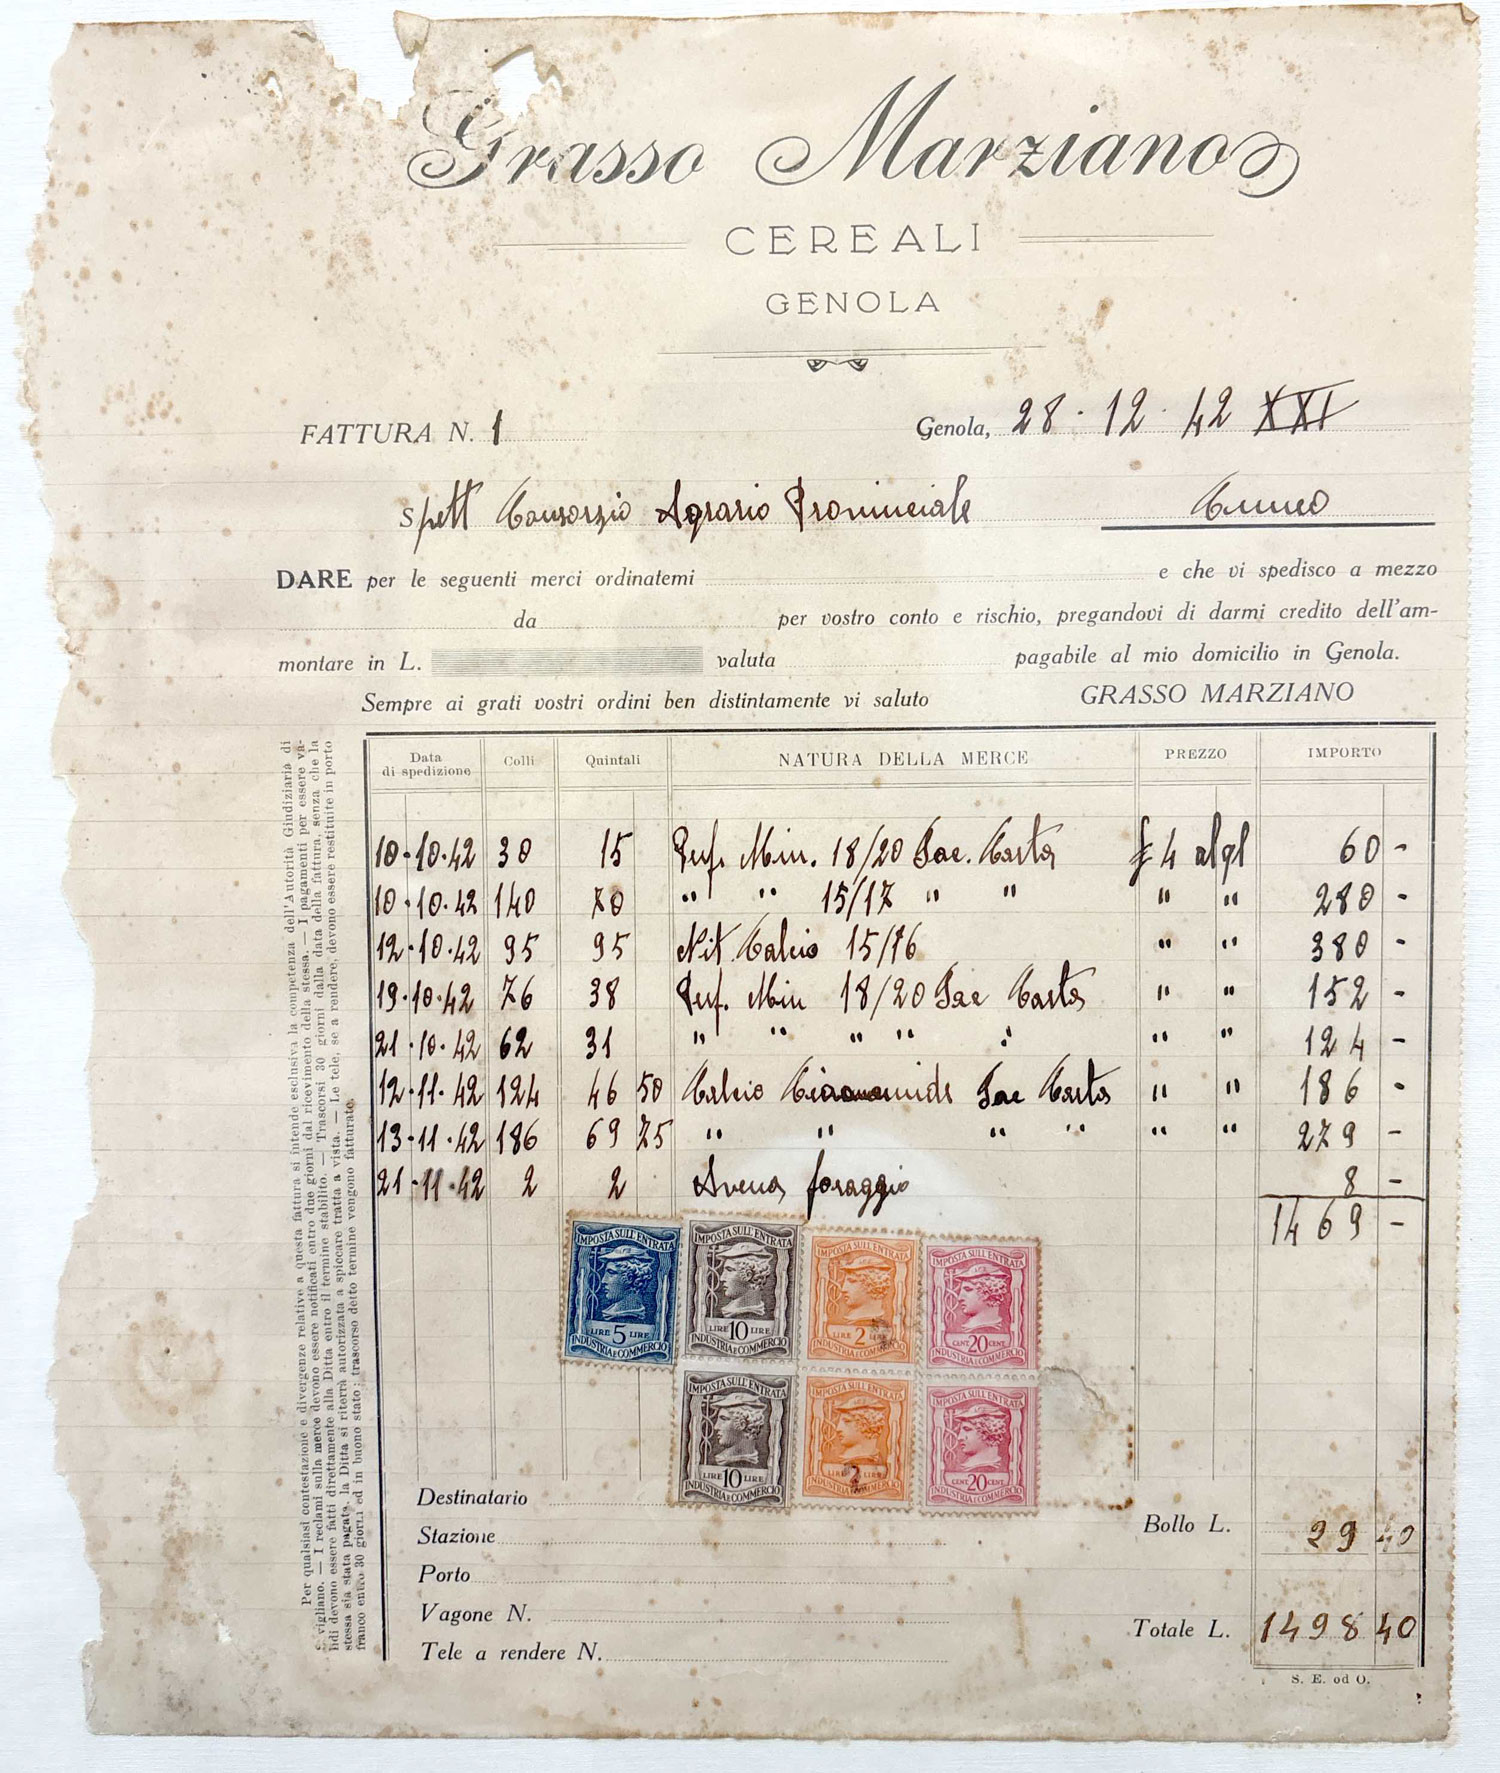 Grasso Marziano
CEREALI
GENOLA
FATTURA N. 1
Genola, 28 · 12 · 42 XXI
Spett Consorzio Agrario Provinciale Cuneo
DARE per le seguenti merci ordinatemi e che vi spedisco a mezzo
da per vostro conto e rischio, pregandovi di darmi credito dell'am-
montare in L. valuta pagabile al mio domicilio in Genola.
Sempre ai grati vostri ordini ben distintamente vi saluto GRASSO MARZIANO
Data di spedizione Colli Quintali NATURA DELLA MERCE PREZZO IMPORTO
10·10·42 30 15 Perf. Min. 18/20 Sac. Carta £ 4 al ql 60 -
10·10·42 140 70 " " 15/17 " " " " 280 -
12·10·42 95 95 Nit. Calcio 15/16 " " 380 -
19·10·42 76 38 Perf. Min 18/20 Sac Carta " " 152 -
21·10·42 62 31 " " " " " " " 124 -
12·11·42 124 46 50 Calcio Sac Carta " " 186 -
13·11·42 186 69 75 " " " " " " 279 -
21·11·42 2 2 Avena foraggio 8 -
1469 -
IMPOSTA SULL'ENTRATA LIRE 5 LIRE INDUSTRIA E COMMERCIO
IMPOSTA SULL'ENTRATA LIRE 10 LIRE INDUSTRIA E COMMERCIO
IMPOSTA SULL'ENTRATA LIRE 2 LIRE INDUSTRIA E COMMERCIO
IMPOSTA SULL'ENTRATA CENT. 20 CENT. INDUSTRIA E COMMERCIO
IMPOSTA SULL'ENTRATA LIRE 10 LIRE INDUSTRIA E COMMERCIO
IMPOSTA SULL'ENTRATA LIRE 2 LIRE INDUSTRIA E COMMERCIO
IMPOSTA SULL'ENTRATA CENT. 20 CENT. INDUSTRIA E COMMERCIO
Destinatario
Stazione
Porto
Vagone N.
Tele a rendere N.
Bollo L. 29 40
Totale L. 1498 40
S. E. od O.
Per qualsiasi contestazione e divergenze relative a questa fattura si intende esclusiva la competenza dell'Autorità Giudiziaria di
Savigliano. — I reclami sulla merce devono essere notificati entro due giorni dal ricevimento della stessa. — I pagamenti per essere va-
lidi devono essere fatti direttamente alla Ditta entro il termine stabilito. — Trascorsi 30 giorni dalla data della fattura, senza che la
stessa sia stata pagata, la Ditta si riterrà autorizzata a spiccare tratta a vista. — Le tele, se a rendere, devono essere restituite in porto
franco entro 30 giorni ed in buono stato; trascorso detto termine vengono fatturate.